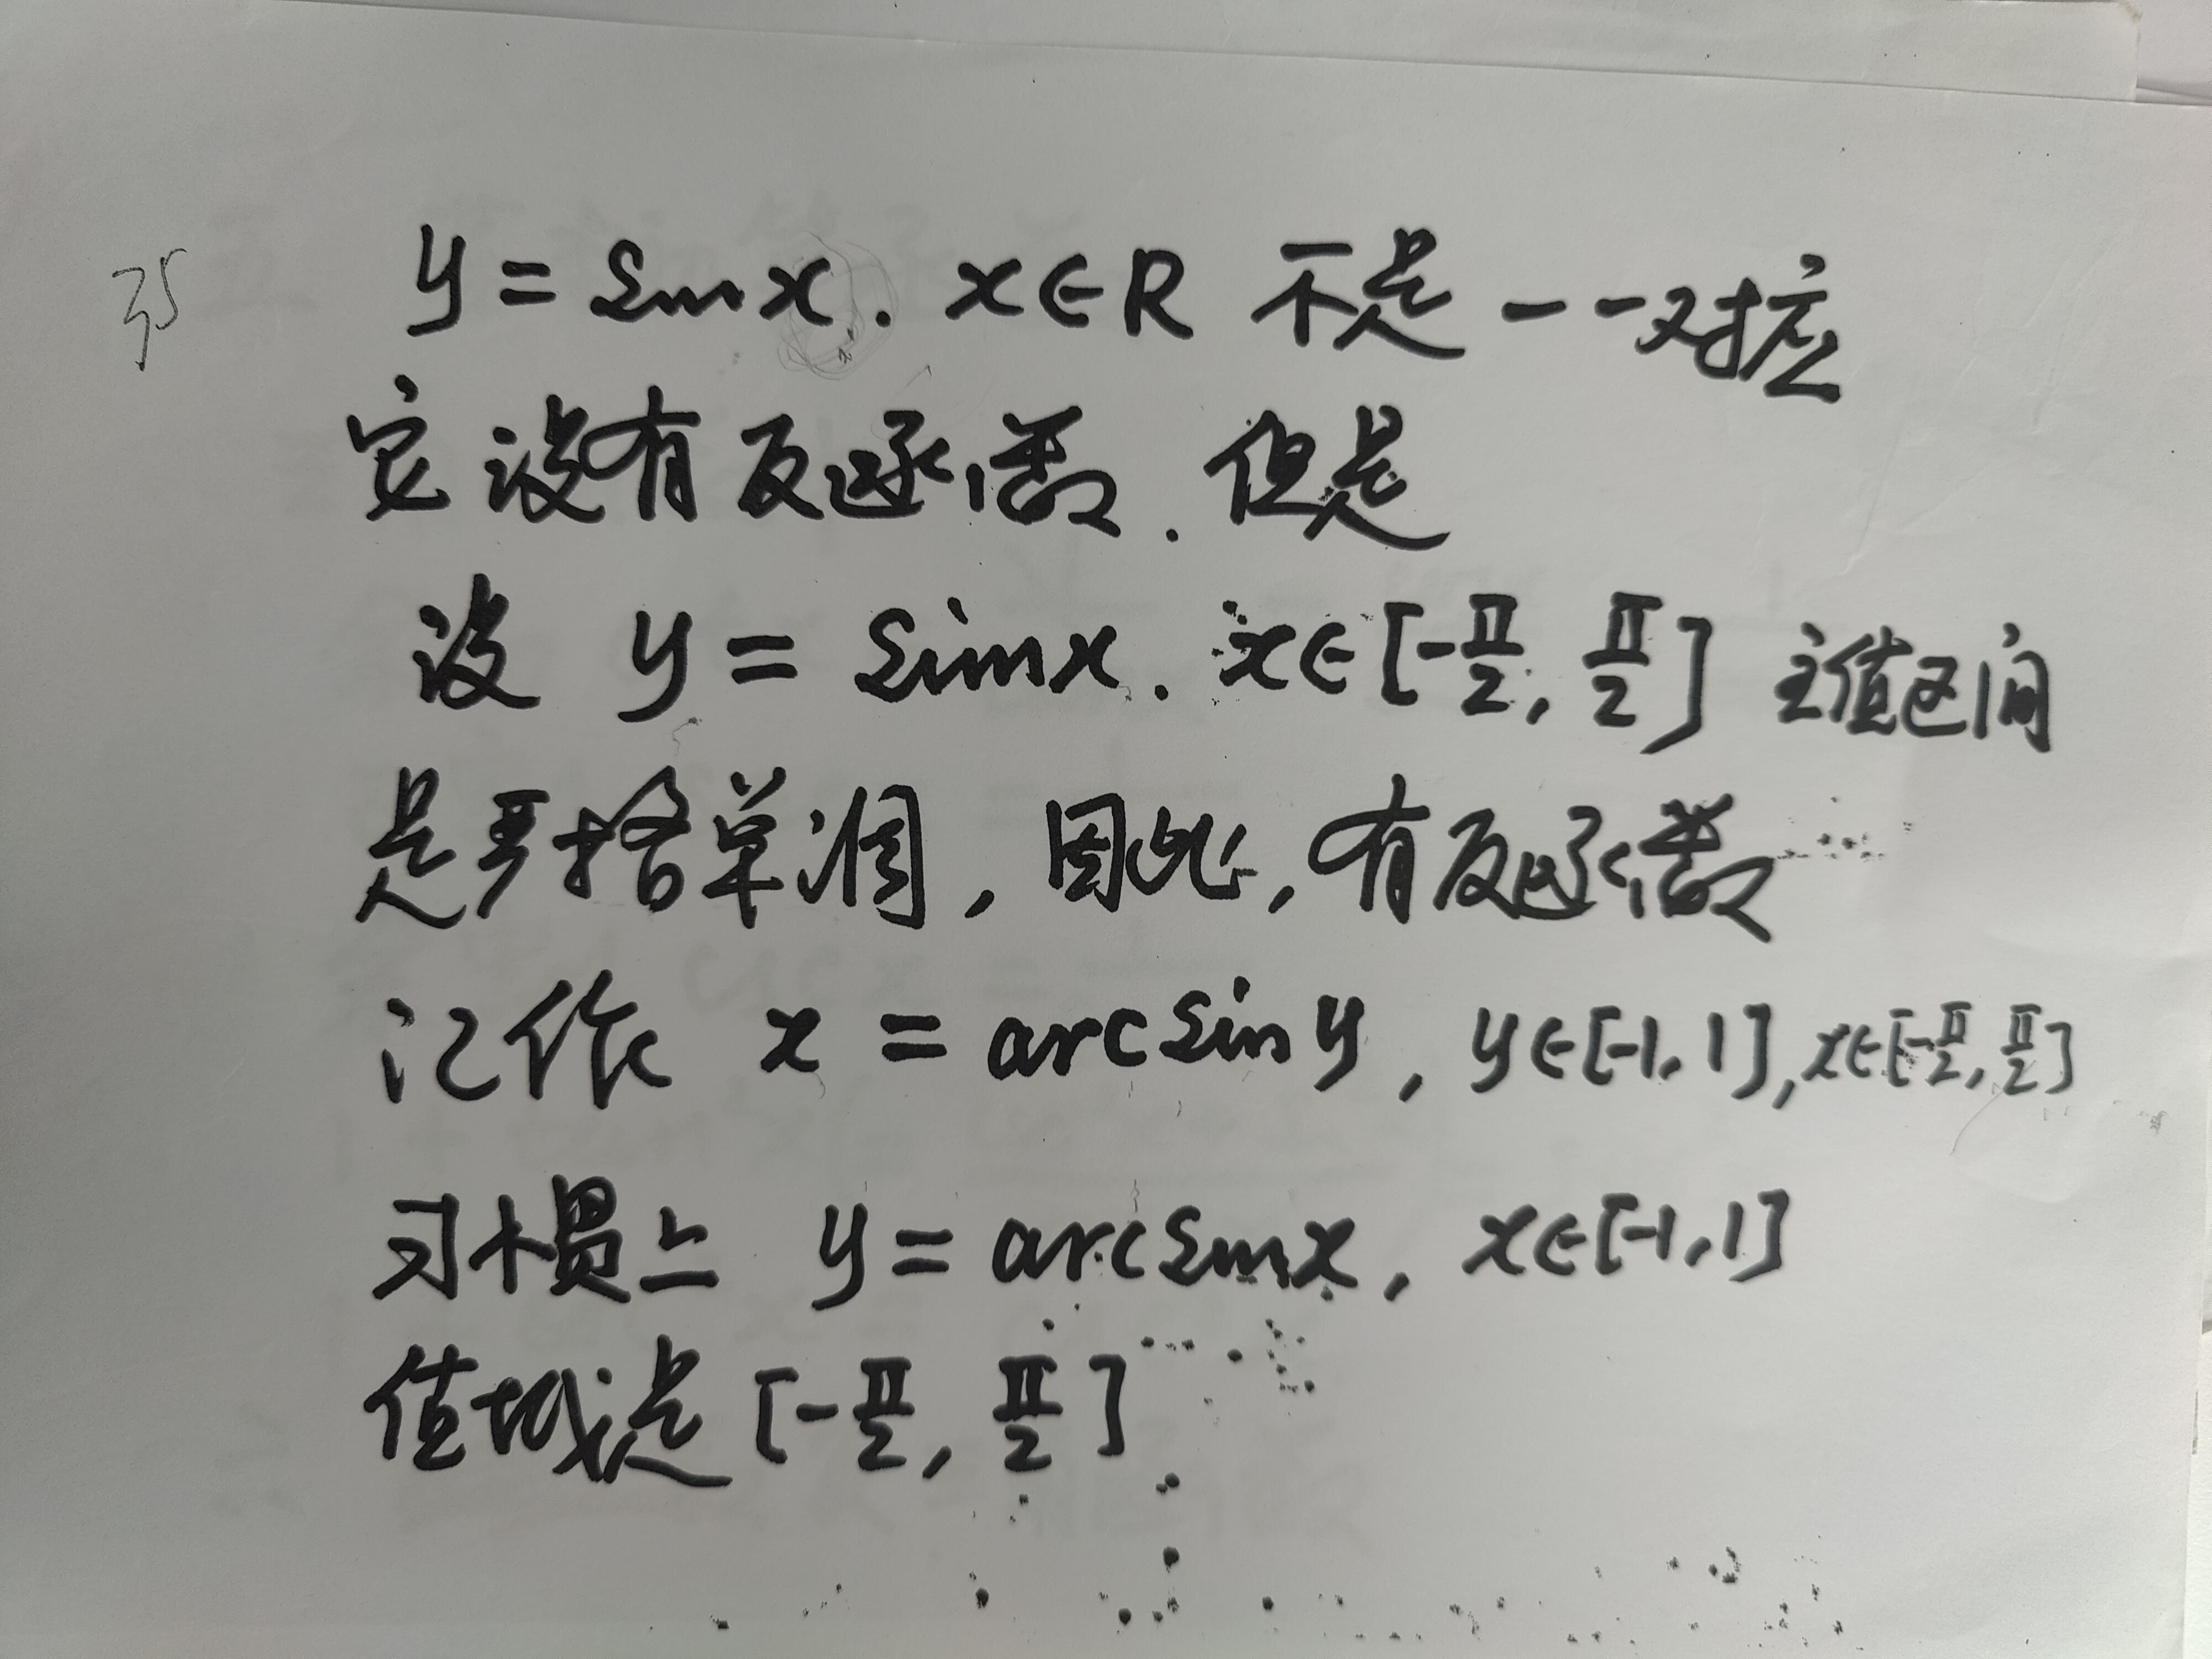 35
y = sinx. x∈R 不是一一对应
它没有反函数. 但是
设 y = sinx. x∈[-π/2, π/2] 主值区间
是严格单调, 因此, 有反函数
记作 x = arcsiny, y∈[-1, 1], x∈[-π/2, π/2]
习惯上 y = arcsinx, x∈[-1, 1]
值域是 [-π/2, π/2].